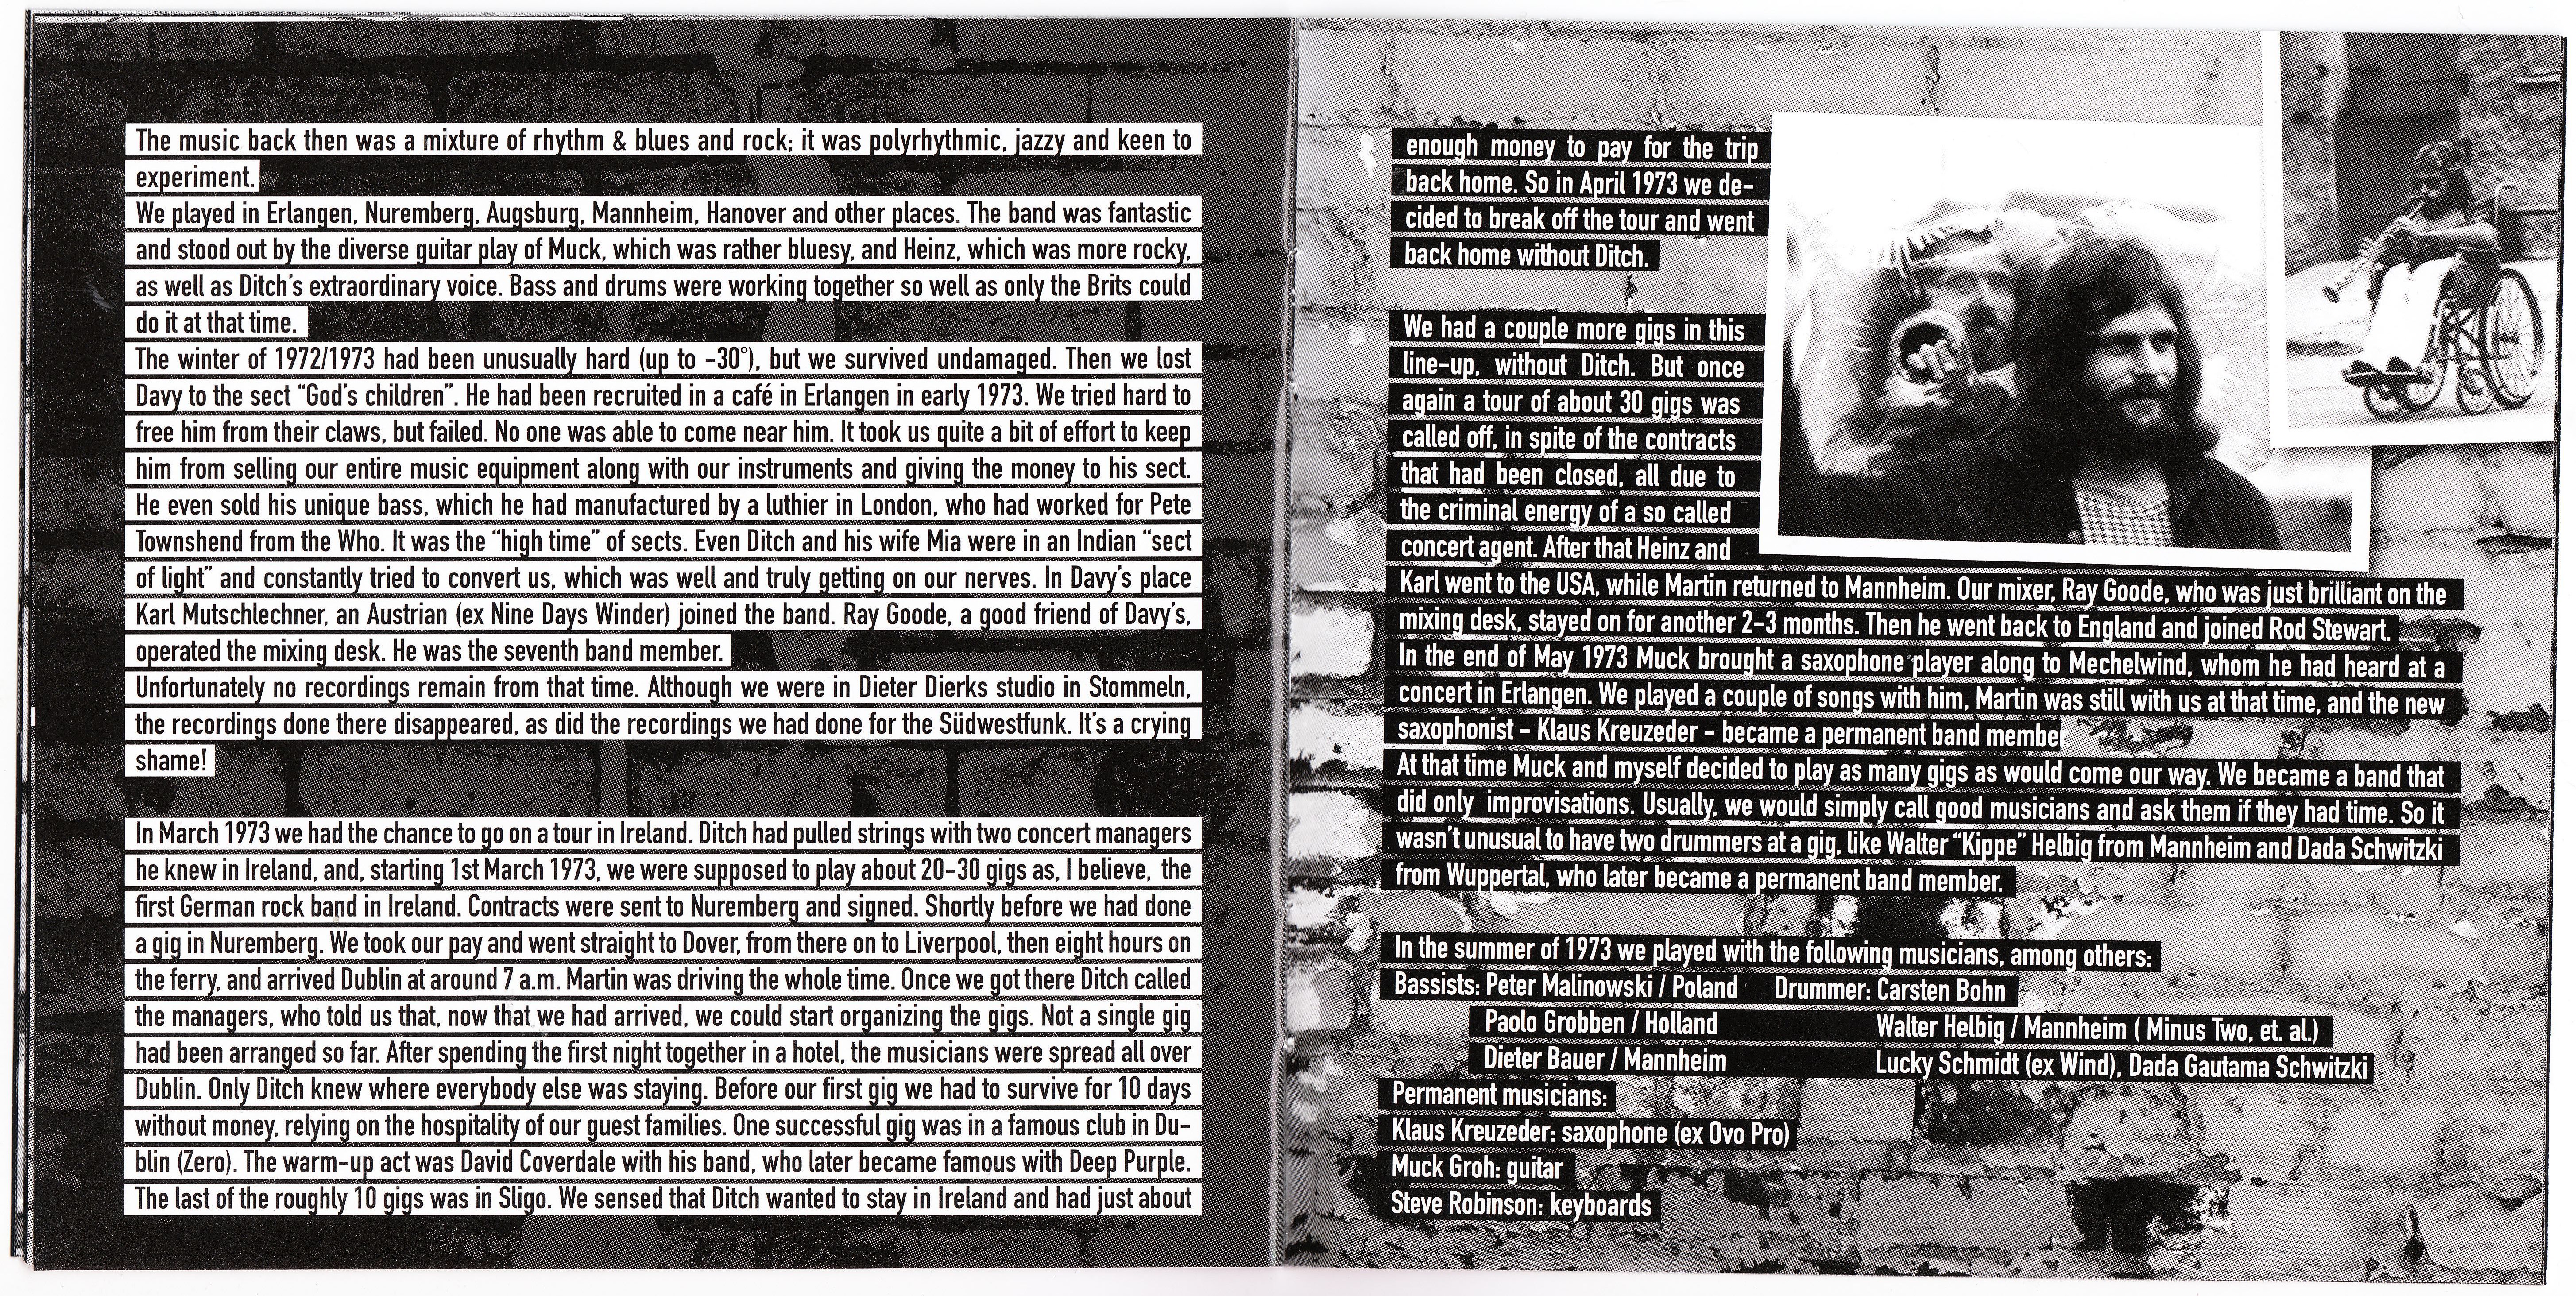 The music back then was a mixture of rhythm & blues and rock; it was polyrhythmic, jazzy and keen to
experiment.
We played in Erlangen, Nuremberg, Augsburg, Mannheim, Hanover and other places. The band was fantastic
and stood out by the diverse guitar play of Muck, which was rather bluesy, and Heinz, which was more rocky,
as well as Ditch's extraordinary voice. Bass and drums were working together so well as only the Brits could
do it at that time.
The winter of 1972/1973 had been unusually hard (up to -30°), but we survived undamaged. Then we lost
Davy to the sect “God's children”. He had been recruited in a café in Erlangen in early 1973. We tried hard to
free him from their claws, but failed. No one was able to come near him. It took us quite a bit of effort to keep
him from selling our entire music equipment along with our instruments and giving the money to his sect.
He even sold his unique bass, which he had manufactured by a luthier in London, who had worked for Pete
Townshend from the Who. It was the “high time” of sects. Even Ditch and his wife Mia were in an Indian “sect
of light” and constantly tried to convert us, which was well and truly getting on our nerves. In Davy's place
Karl Mutschlechner, an Austrian (ex Nine Days Winder) joined the band. Ray Goode, a good friend of Davy's,
operated the mixing desk. He was the seventh band member.
Unfortunately no recordings remain from that time. Although we were in Dieter Dierks studio in Stommeln,
the recordings done there disappeared, as did the recordings we had done for the Südwestfunk. It's a crying
shame!
In March 1973 we had the chance to go on a tour in Ireland. Ditch had pulled strings with two concert managers
he knew in Ireland, and, starting 1st March 1973, we were supposed to play about 20-30 gigs as, I believe, the
first German rock band in Ireland. Contracts were sent to Nuremberg and signed. Shortly before we had done
a gig in Nuremberg. We took our pay and went straight to Dover, from there on to Liverpool, then eight hours on
the ferry, and arrived Dublin at around 7 a.m. Martin was driving the whole time. Once we got there Ditch called
the managers, who told us that, now that we had arrived, we could start organizing the gigs. Not a single gig
had been arranged so far. After spending the first night together in a hotel, the musicians were spread all over
Dublin. Only Ditch knew where everybody else was staying. Before our first gig we had to survive for 10 days
without money, relying on the hospitality of our guest families. One successful gig was in a famous club in Du-
blin (Zero). The warm-up act was David Coverdale with his band, who later became famous with Deep Purple.
The last of the roughly 10 gigs was in Sligo. We sensed that Ditch wanted to stay in Ireland and had just about
enough money to pay for the trip
back home. So in April 1973 we de-
cided to break off the tour and went
back home without Ditch.
We had a couple more gigs in this
line-up, without Ditch. But once
again a tour of about 30 gigs was
called off, in spite of the contracts
that had been closed, all due to
the criminal energy of a so called
concert agent. After that Heinz and
Karl went to the USA, while Martin returned to Mannheim. Our mixer, Ray Goode, who was just brilliant on the
mixing desk, stayed on for another 2-3 months. Then he went back to England and joined Rod Stewart.
In the end of May 1973 Muck brought a saxophone player along to Mechelwind, whom he had heard at a
concert in Erlangen. We played a couple of songs with him, Martin was still with us at that time, and the new
saxophonist - Klaus Kreuzeder - became a permanent band member.
At that time Muck and myself decided to play as many gigs as would come our way. We became a band that
did only improvisations. Usually, we would simply call good musicians and ask them if they had time. So it
wasn't unusual to have two drummers at a gig, like Walter “Kippe” Helbig from Mannheim and Dada Schwitzki
from Wuppertal, who later became a permanent band member.
In the summer of 1973 we played with the following musicians, among others:
Bassists: Peter Malinowski / Poland Drummer: Carsten Bohn
Paolo Grobben / Holland Walter Helbig / Mannheim ( Minus Two, et. al.)
Dieter Bauer / Mannheim Lucky Schmidt (ex Wind), Dada Gautama Schwitzki
Permanent musicians:
Klaus Kreuzeder: saxophone (ex Ovo Pro)
Muck Groh: guitar
Steve Robinson: keyboards